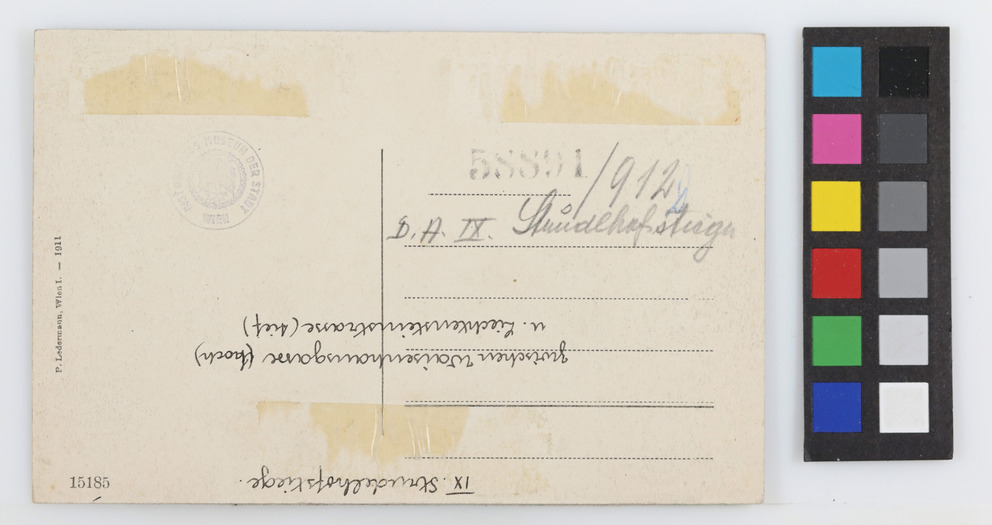 58891/912
D. A. IX. Strudlhofstiege
MUSEUM DER STADT WIEN
P. Ledermann, Wien I. — 1911
15185
IX. Strudelhofstiege.
zwischen Waisenhausgasse (hoch)
u. Liechtensteinstrasse (tief)